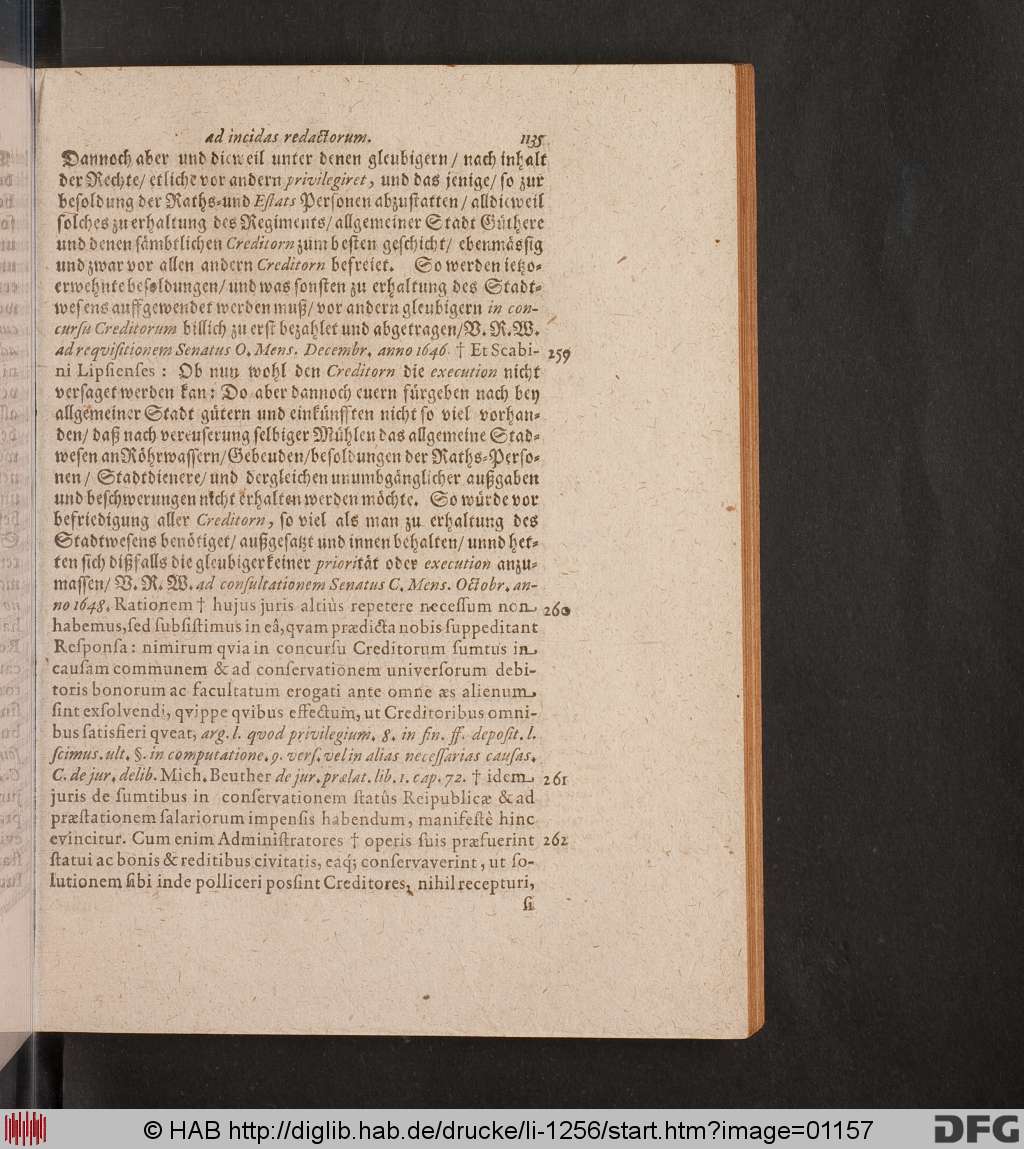 ad incidas redactorum. 1135
Dannoch aber und dieweil unter denen gleubigern / nach inhalt
der Rechte / etliche vor andern privilegiret, und das jenige / so zur
besoldung der Raths-und Estats Personen abzustatten / alldieweil
solches zu erhaltung des Regiments / allgemeiner Stadt Güthere
und denen sämbtlichen Creditorn zum besten geschicht / ebenmässig
und zwar vor allen andern Creditorn befreiet. So werden ietzo-
erwehnte besoldungen / und was sonsten zu erhaltung des Stadt-
wesens auffgewendet werden muß / vor andern gleubigern in con-
cursu Creditorum billich zu erst bezahlet und abgetragen / V. R. W.
ad reqvisitionem Senatus O. Mens. Decembr. anno 1646. † Et Scabi- 259
ni Lipsienses : Ob nun wohl den Creditorn die execution nicht
versaget werden kan : Do aber dannoch euern fürgeben nach bey
allgemeiner Stadt gütern und einkünfften nicht so viel vorhan-
den / daß nach vereuserung selbiger Mühlen das allgemeine Stad-
wesen an Röhrwassern / Gebeuden / besoldungen der Raths-Perso-
nen / Stadtdienere / und dergleichen unumbgänglicher außgaben
und beschwerungen nicht erhalten werden möchte. So würde vor
befriedigung aller Creditorn, so viel als man zu erhaltung des
Stadtwesens benötiget / außgesatzt und innen behalten / unnd het-
ten sich dißfalls die gleubiger keiner priorität oder execution anzu-
massen / V. R. W. ad consultationem Senatus C. Mens. Octobr. an-
no 1648. Rationem † hujus juris altiùs repetere necessum non 260
habemus, sed subsistimus in eâ, qvam prædicta nobis suppeditant
Responsa : nimirum qvia in concursu Creditorum sumtus in
causam communem & ad conservationem universorum debi-
toris bonorum ac facultatum erogati ante omne æs alienum
sint exsolvendi, qvippe qvibus effectum, ut Creditoribus omni-
bus satisfieri qveat, arg. l. qvod privilegium. 8. in fin. ff. deposit. l.
scimus. ult. §. in computatione. 9. vers. vel in alias necessarias causas.
C. de jur. delib. Mich. Beuther de jur. prælat. lib. 1. cap. 72. † idem 261
juris de sumtibus in conservationem statûs Reipublicæ & ad
præstationem salariorum impensis habendum, manifestè hinc
evincitur. Cum enim Administratores † operis suis præfuerint 262
statui ac bonis & reditibus civitatis, eaq; conservaverint, ut so-
lutionem sibi inde polliceri possint Creditores, nihil recepturi,
si
© HAB http://diglib.hab.de/drucke/li-1256/start.htm?image=01157
DFG